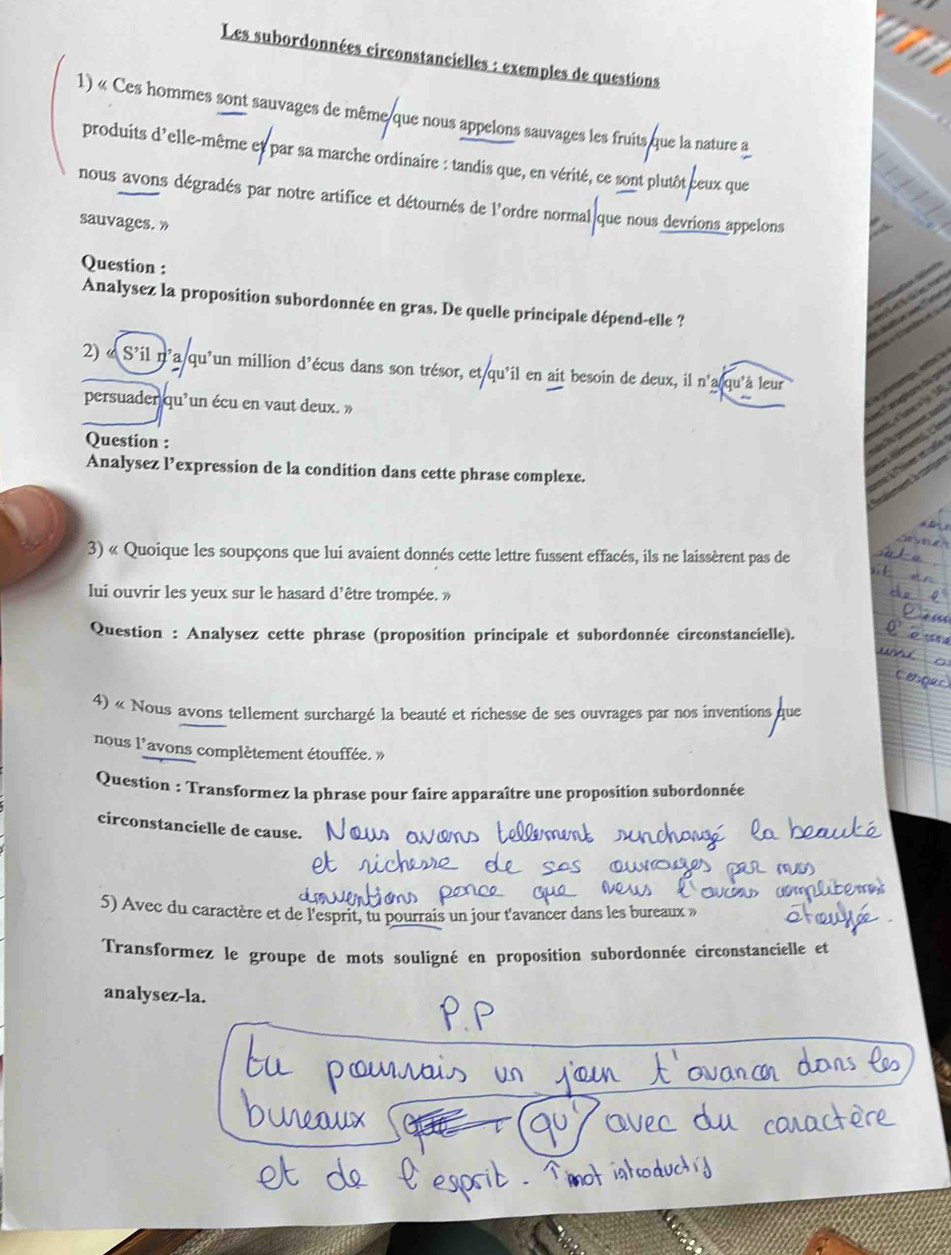 Les subordonnées circonstancielles : exemples de questions
1) « Ces hommes sont sauvages de même que nous appelons sauvages les fruits que la nature a
produits d'elle-même et par sa marche ordinaire : tandis que, en vérité, ce sont plutôt ceux que
nous avons dégradés par notre artifice et détournés de l'ordre normal que nous devrions appelons
sauvages. »
Question :
Analysez la proposition subordonnée en gras. De quelle principale dépend-elle ?
2) « S'il n'a qu'un million d'écus dans son trésor, et qu'il en ait besoin de deux, il n'a qu'à leur
persuader qu'un écu en vaut deux. »
Question :
Analysez l'expression de la condition dans cette phrase complexe.
3) « Quoique les soupçons que lui avaient donnés cette lettre fussent effacés, ils ne laissèrent pas de
lui ouvrir les yeux sur le hasard d'être trompée. »
Question : Analysez cette phrase (proposition principale et subordonnée circonstancielle).
4) « Nous avons tellement surchargé la beauté et richesse de ses ouvrages par nos inventions que
nous l'avons complètement étouffée. »
Question : Transformez la phrase pour faire apparaître une proposition subordonnée
circonstancielle de cause. Nous avons tellement surchargé la beauté
et richesse de ses ouvrages par nos
inventions parce que nous l'avons complètement
étouffée.
5) Avec du caractère et de l'esprit, tu pourrais un jour t'avancer dans les bureaux »
Transformez le groupe de mots souligné en proposition subordonnée circonstancielle et
analysez-la.
P.P
tu pourrais un jour t'avancer dans les
bureaux qu' avec du caractère
et de l'esprit. ↑ mot introductif